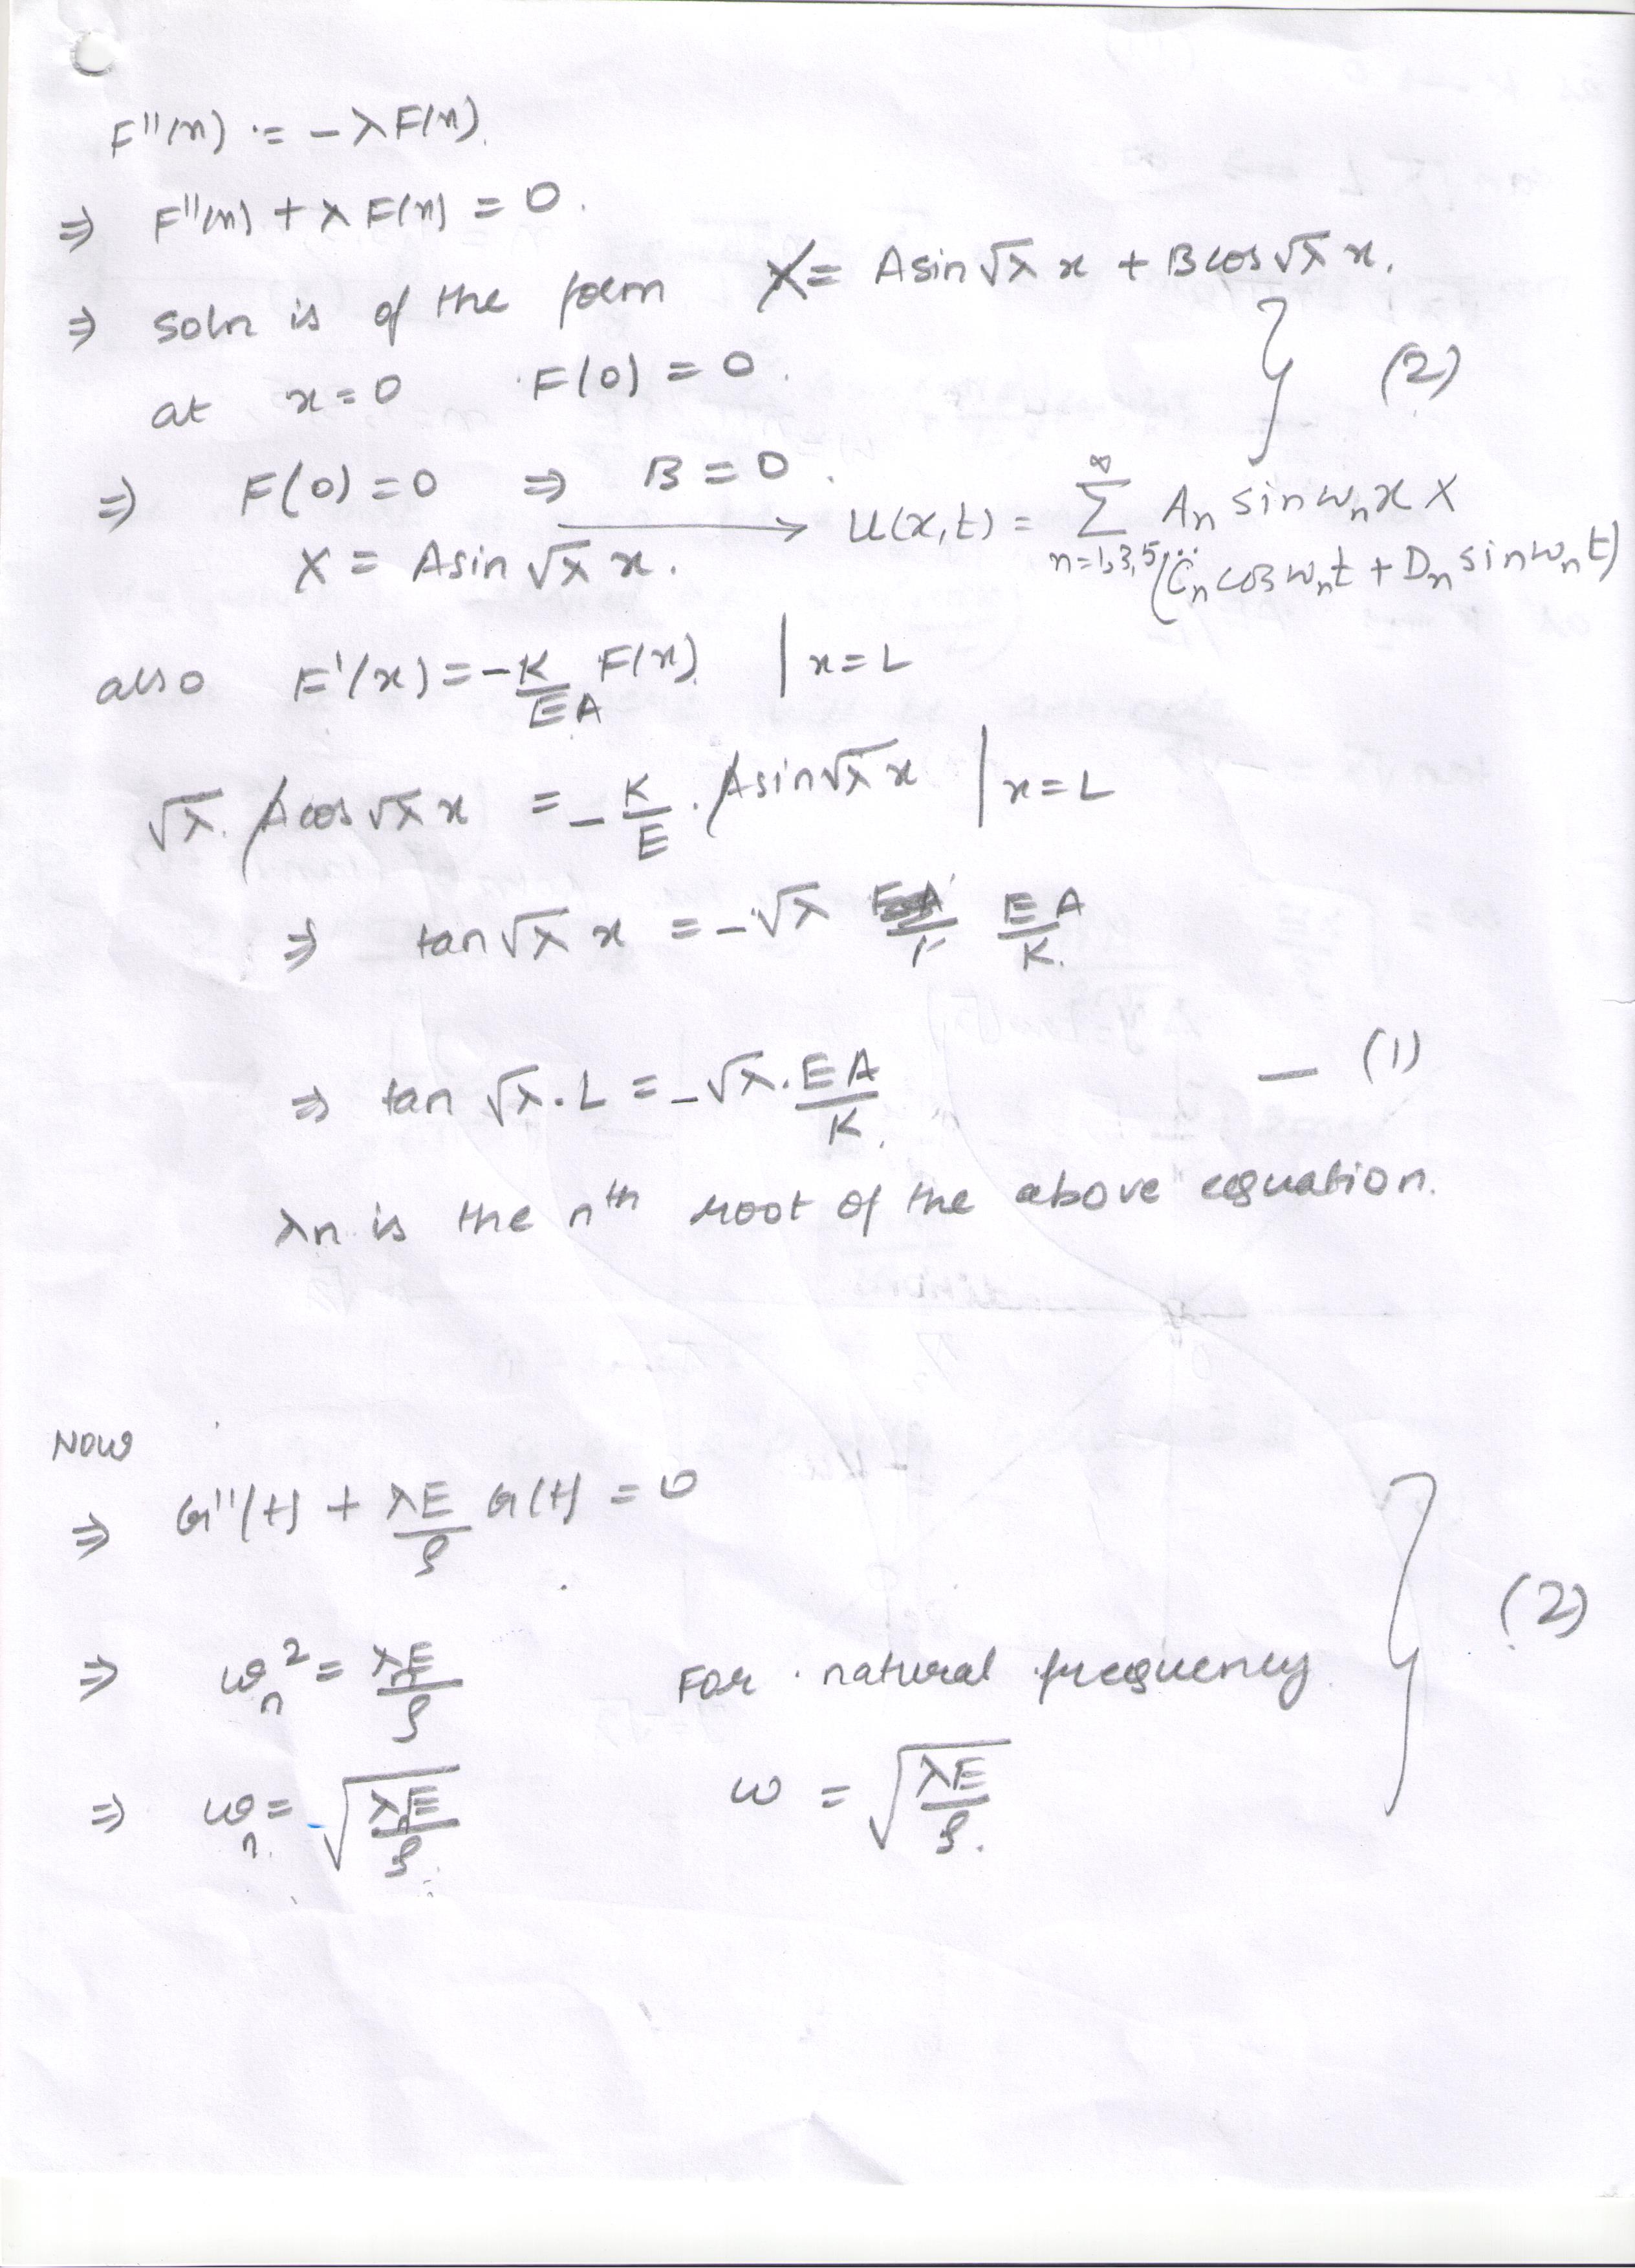 F''(x) = -λF(x).
⇒ F''(x) + λF(x) = 0.
⇒ soln is of the form X = A sin √λ x + B cos √λ x.
at x = 0 F(0) = 0. } (2)
⇒ F(0) = 0 ⇒ B = 0.
X = A sin √λ x. → u(x,t) = ∞ Σ n=1,3,5,... An sin ωn x X
(Cn cos ωn t + Dn sin ωn t)
also F'(x) = -K/EA F(x) | x = L
√λ. A cos √λ x = - K/E . A sin √λ x | x = L
⇒ tan √λ x = -√λ EA/K.
⇒ tan √λ . L = -√λ . EA/K. — (1)
λn is the nth root of the above equation.
NOW
⇒ G''(t) + λE/ρ G(t) = 0
⇒ ωn² = λE/ρ For natural frequency. } (2)
⇒ ωn = √λE/ρ ω = √λE/ρ.